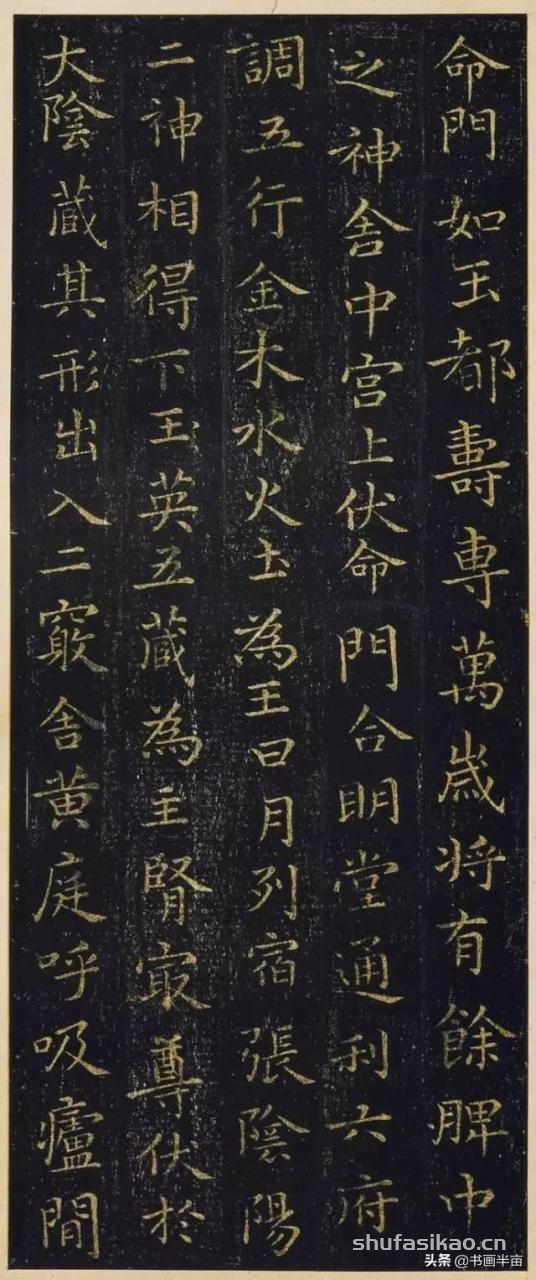 命門如玉都壽専萬歲将有餘脾中
之神舍中宫上伏命門合明堂通利六府
調五行金木水火土為王日月列宿張陰陽
二神相得下玉英五蔵為主腎㝡尊伏於
大陰蔵其形出入二竅舍黄庭呼吸廬間
shufasikao.cn
头条 @书画半亩